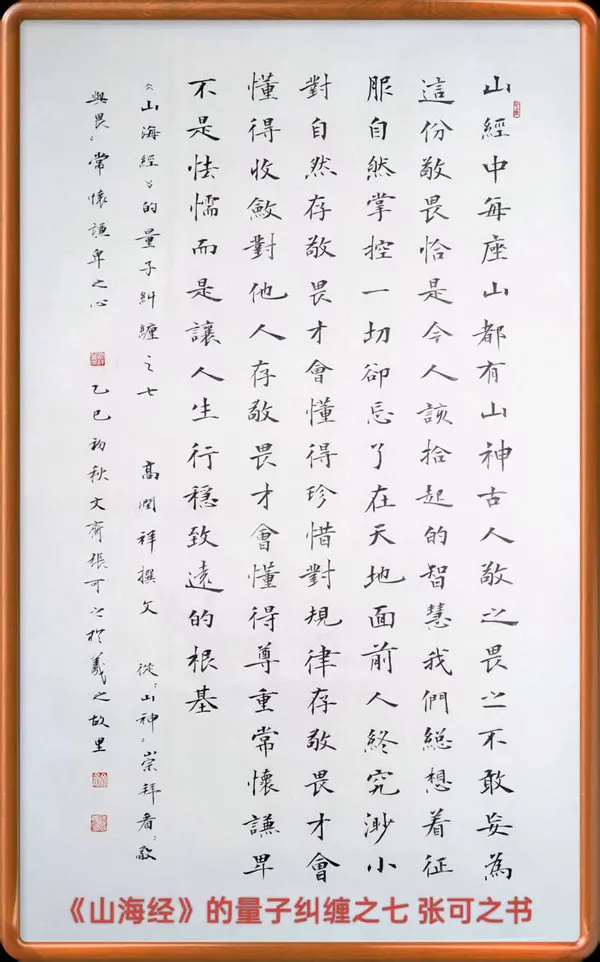 山經中每座山都有山神古人敬之畏之不敢妄為
這份敬畏恰是今人該拾起的智慧我們總想着征
服自然掌控一切卻忘了在天地面前人終究渺小
對自然存敬畏才會懂得珍惜對規律存敬畏才會
懂得收斂對他人存敬畏才會懂得尊重常懷謙卑
不是怯懦而是讓人生行穩致遠的根基
《山海經》的量子糾纏之七 高閏祥撰文 從“山神”崇拜看“敬
與畏”常懷謙卑之心 乙巳初秋文齊張可之於羲之故里
《山海经》的量子纠缠之七 张可之书